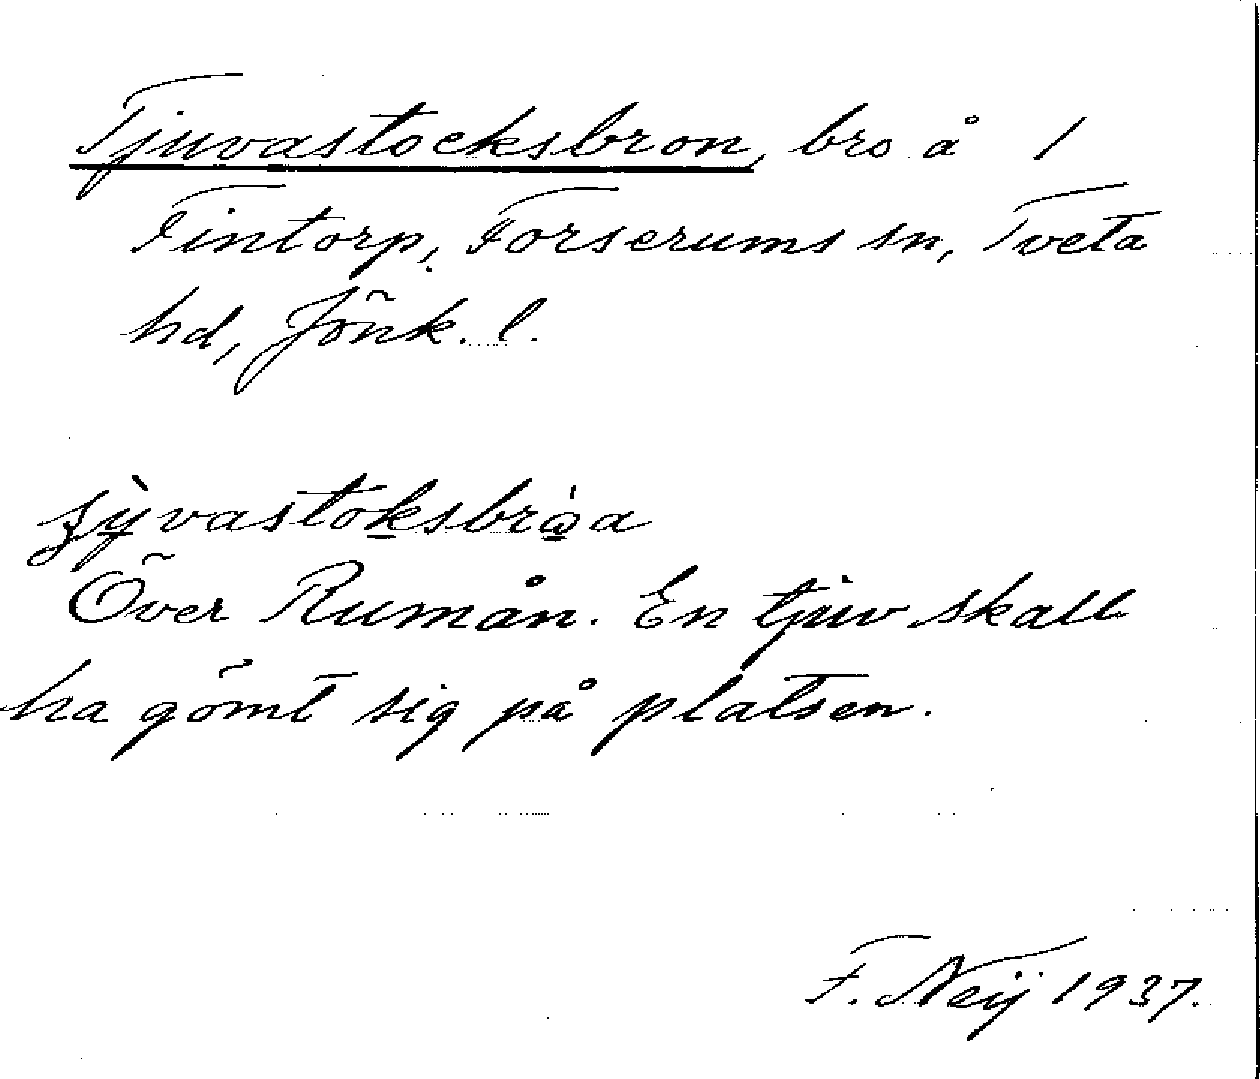 Tjuvastocksbron, bro å 1
Fintorp, Forserums sn, Tveta
hd, Jönk. l.
Över Rumån. En tjuv skall
ha gömt sig på platsen.
F. Neij 1937.